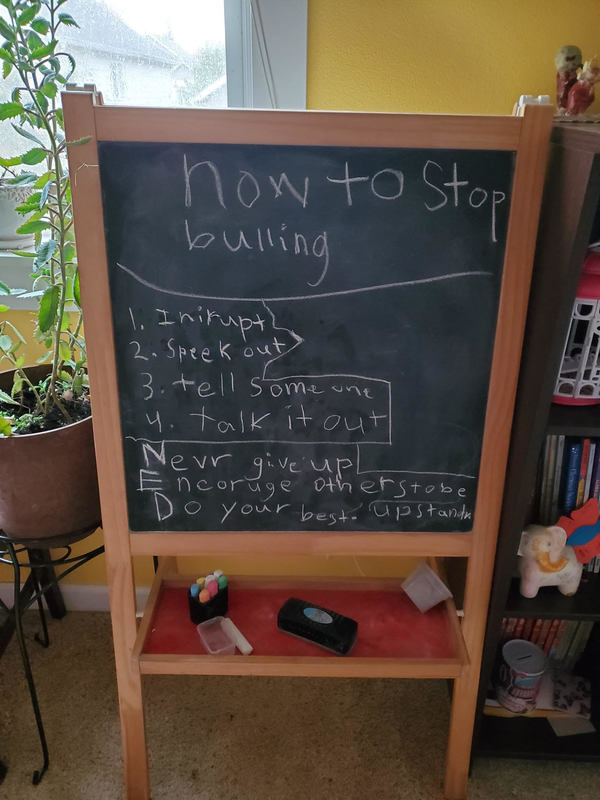 how to stop
bulling
1. Inirupt
2. Speek out
3. tell some one
4. talk it out
Nevr give up
Encoruge others to be
Do your best. upstandr